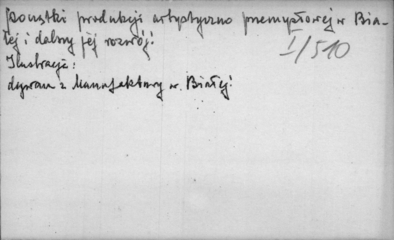 Początki produkcji artystyczno przemysłowej w Bia-
łej i dalszy jej rozwój.
I/510
Ilustracje:
dywan z Manufaktury w. Białej.